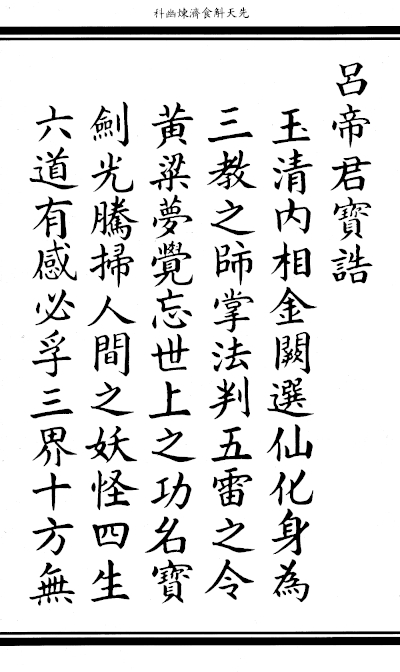 先天斛食濟煉幽科
呂帝君寶誥
玉清內相金闕選仙化身為
三教之師掌法判五雷之令
黃粱夢覺忘世上之功名寶
劍光騰掃人間之妖怪四生
六道有感必孚三界十方無